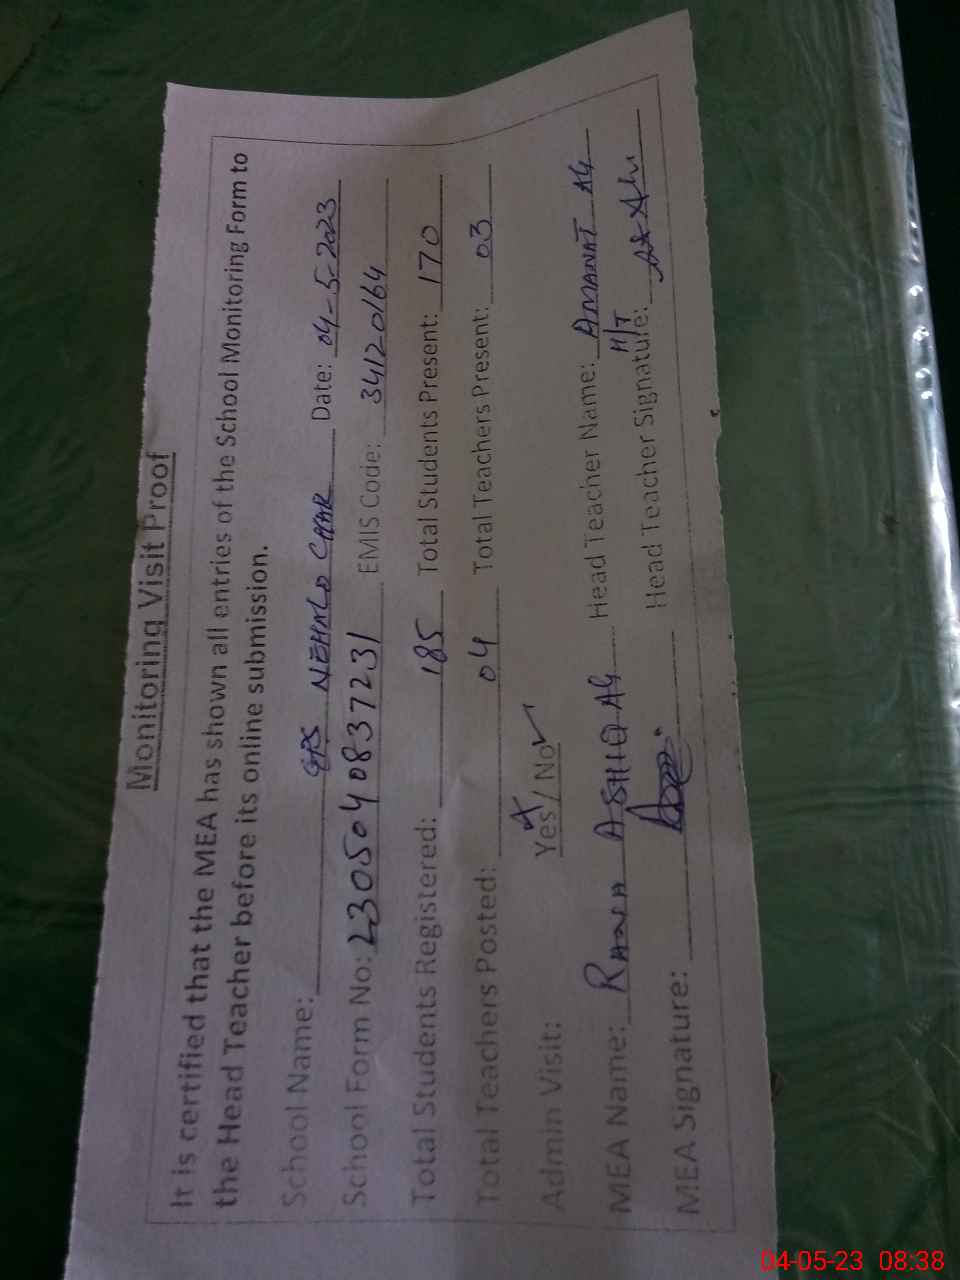 Monitoring Visit Proof
It is certified that the MEA has shown all entries of the School Monitoring Form to
the Head Teacher before its online submission.
School Name: GPS NEHALO CHAR Date: 04-5-2023
School Form No: 2305040837231 EMIS Code: 34120164
Total Students Registered: 185 Total Students Present: 170
Total Teachers Posted: 04 Total Teachers Present: 03
Admin Visit: Yes / No ✓
MEA Name: RANA ASHIQ Ali Head Teacher Name: AMANAT Ali
H/T
MEA Signature: Head Teacher Signature:
04-05-23 08:38